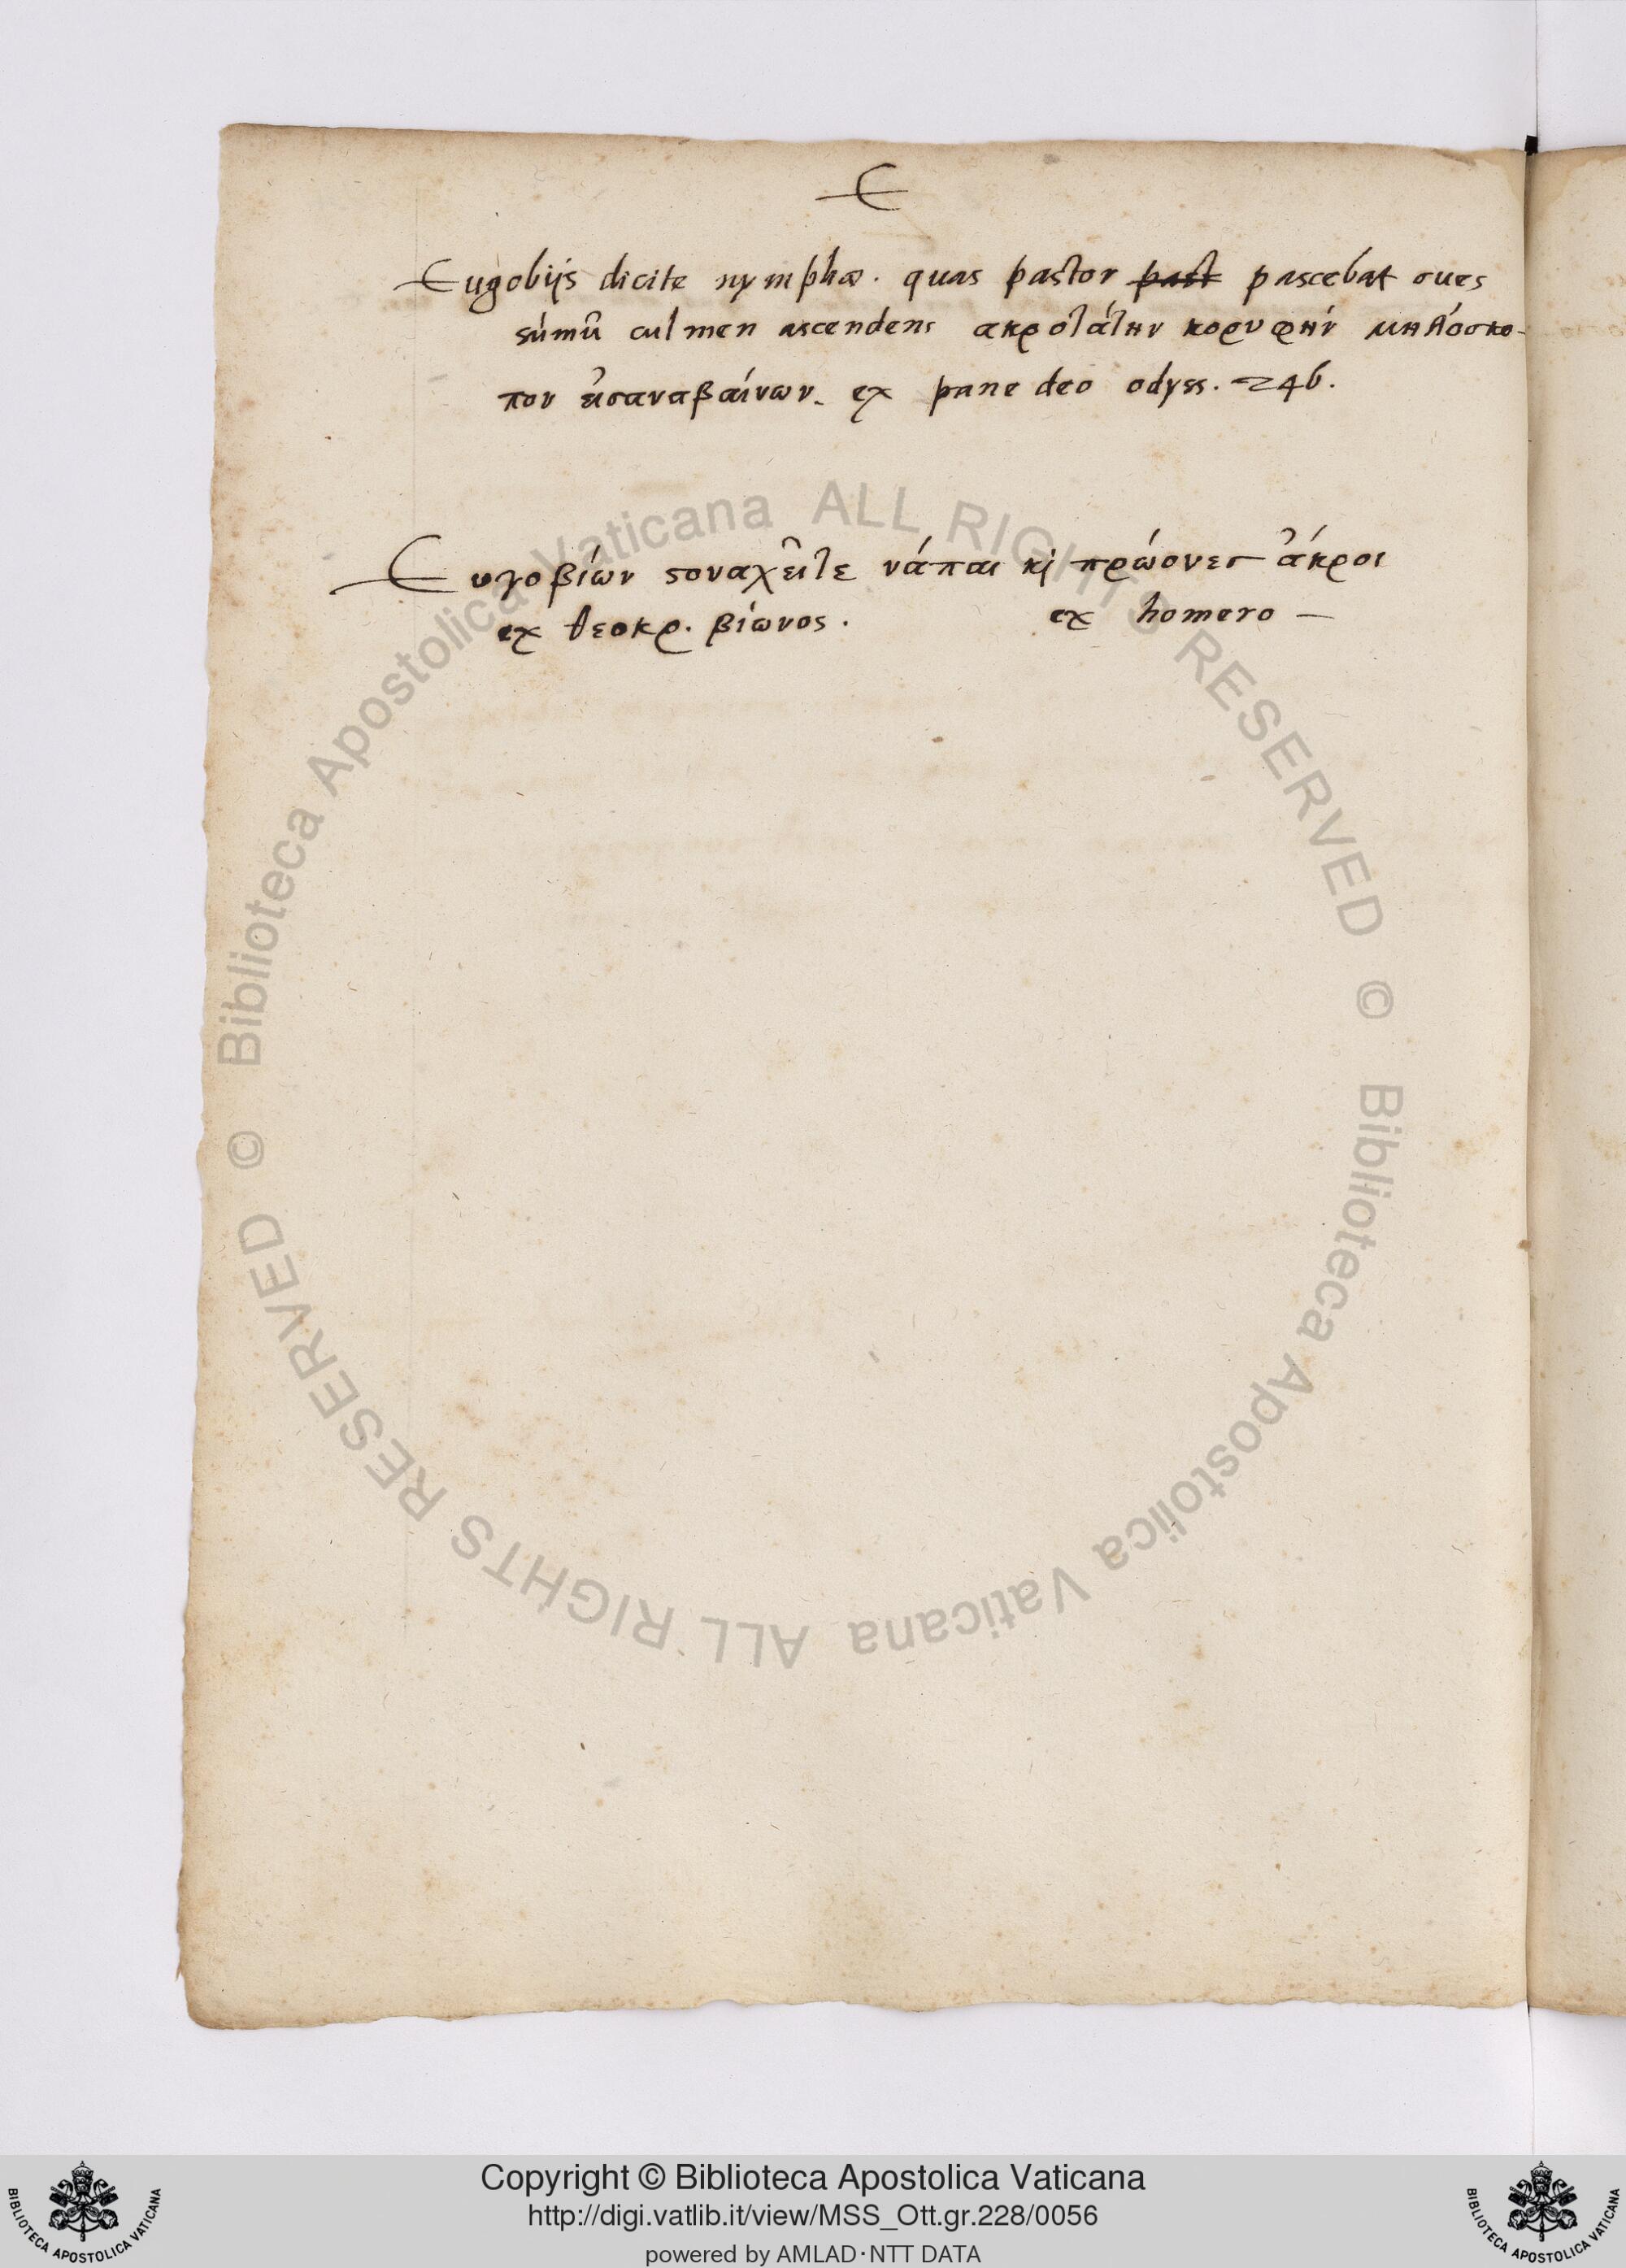 Є
Eugobijs dicite nymphæ. quas pastor past pascebat oues
súmũ culmen ascendens ακροτάτην κορυφήν μηλόσκο-
πον εἰσαναβαίνων. ex pane deo odyss. 246.
Ευγοβίων ςοναχεῖτε νάπαι κὶ πρώονες ἄκροι
ex θεοκρ. βίωνος. ex homero —
© Biblioteca Apostolica Vaticana ALL RIGHTS RESERVED
© Biblioteca Apostolica Vaticana ALL RIGHTS RESERVED
Copyright © Biblioteca Apostolica Vaticana
http://digi.vatlib.it/view/MSS_Ott.gr.228/0056
powered by AMLAD·NTT DATA
BIBLIOTECA APOSTOLICA VATICANA
BIBLIOTECA APOSTOLICA VATICANA